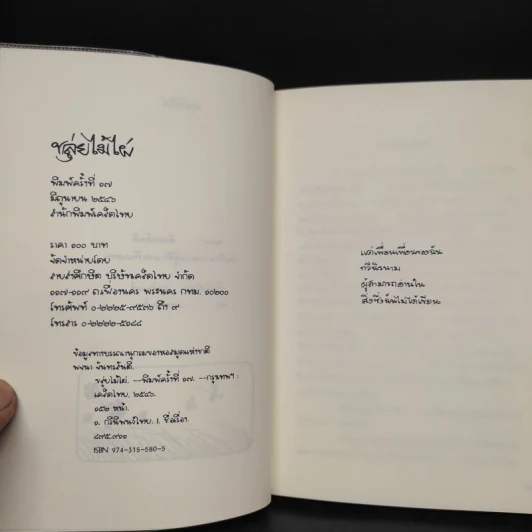 ขลุ่ยไม้ไผ่
พิมพ์ครั้งที่ ๑๗
มิถุนายน ๒๕๔๖
สำนักพิมพ์เคล็ดไทย
ราคา ๑๐๐ บาท
จัดจำหน่ายโดย
สายส่งศึกษิต บริษัทเคล็ดไทย จำกัด
๑๑๗-๑๑๙ ถ.เฟื่องนคร พระนคร กทม. ๑๐๒๐๐
โทรศัพท์ ๐-๒๒๒๕-๙๕๓๖ ถึง ๙
โทรสาร ๐-๒๒๒๒-๕๑๘๘
ข้อมูลทางบรรณานุกรมของหอสมุดแห่งชาติ
พจนา จันทรสันติ.
ขลุ่ยไม้ไผ่. --พิมพ์ครั้งที่ ๑๗. --กรุงเทพฯ :
เคล็ดไทย, ๒๕๔๖.
๑๕๒ หน้า.
๑. กวีนิพนธ์ไทย. I. ชื่อเรื่อง.
๘๙๕.๙๑๑
ISBN 974-315-580-5
แด่เพื่อนเพื่อนของฉัน
กวีนิรนาม
ผู้สามารถอ่านใน
สิ่งซึ่งฉันไม่ได้เขียน